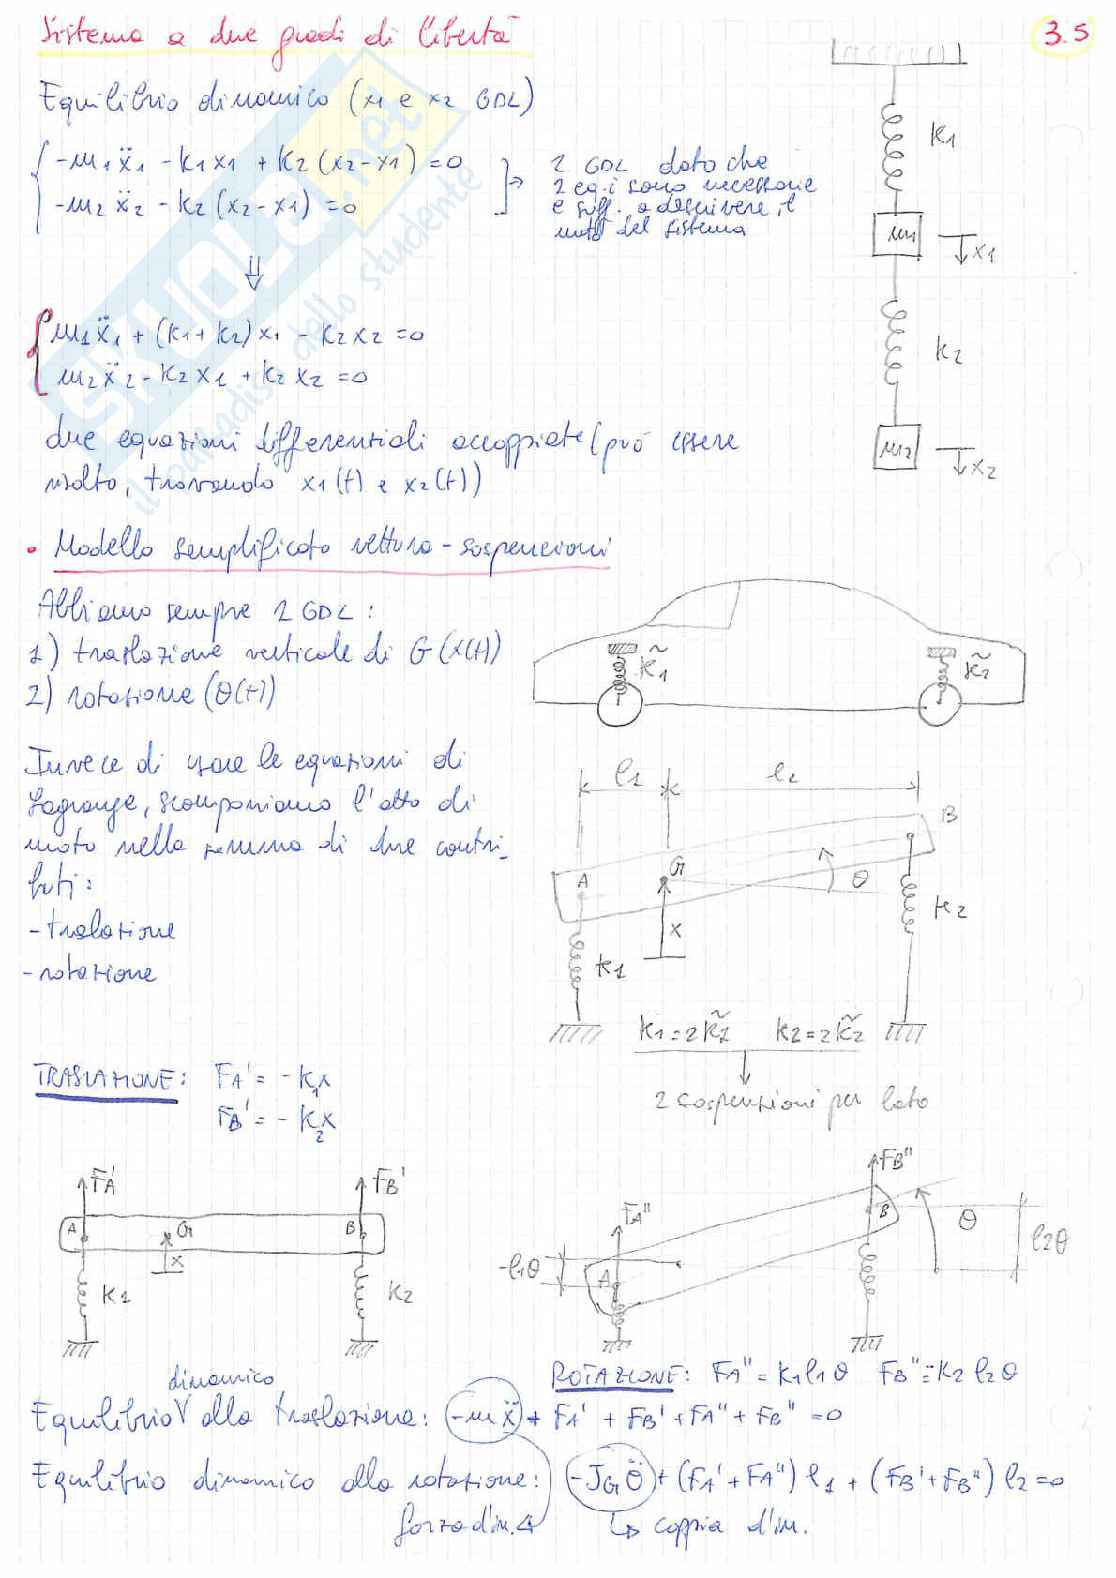 Sistema a due gradi di libertà
3.5
Equilibrio dinamico (x1 e x2 GDL)
-m1ẍ1 - k1x1 + k2(x2-x1) = 0
-m2ẍ2 - k2(x2-x1) = 0
2 GDL dato che
2 eq.i sono necessarie
e suff. a descrivere il
moto del sistema
k1
m1
x1
k2
m2
x2
⇓
m1ẍ1 + (k1+k2)x1 - k2x2 = 0
m2ẍ2 - k2x1 + k2x2 = 0
due equazioni differenziali accoppiate (può essere
risolto, trovando x1(t) e x2(t))
• Modello semplificato vettura-sospensioni
Abbiamo sempre 2 GDL:
1) traslazione verticale di G (x(t))
2) rotazione (θ(t))
k̃1
k̃2
Invece di usare le equazioni di
Lagrange, scomponiamo l'atto di
moto nella somma di due contri-
buti:
- traslazione
- rotazione
l1
l2
A
G
B
θ
x
k1
k2
k1=2k̃1 k2=2k̃2
2 sospensioni per lato
TRASLAZIONE: FA' = -k1x
FB' = -k2x
FA'
FB'
A
G
B
x
k1
k2
FA"
FB"
-l1θ
A
B
θ
l2θ
ROTAZIONE: FA" = k1l1θ FB" = k2l2θ
dinamico
Equilibrio V alla traslazione: -mẍ + FA' + FB' + FA" + FB" = 0
Equilibrio dinamico alla rotazione: -JGθ̈ + (FA' + FA") l1 + (FB' + FB") l2 = 0
forza d'in. ↳ coppia d'in.
SKUOLA.net
il paradiso dello studente